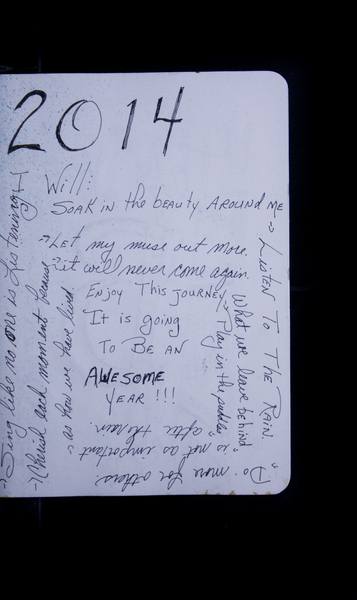 2014
Will:
Soak in the beauty Around me
Let my muse out more.
it will never come again.
Enjoy This journey
It is going
To Be An
AWESOME
YEAR !!!
Listen To The Rain
Play in the puddles
"after the rain.
What we leave behind
"is not as important
as how we have lived"
"Do more for others.
Cherish each moment because
Sing like no one is Listening